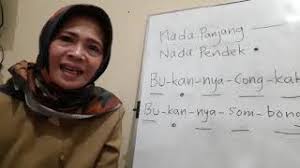 Nada Panjang
Nada Pendek •
Bu-kan-nya-Cong-kak
Bu-kan-nya-som-bong